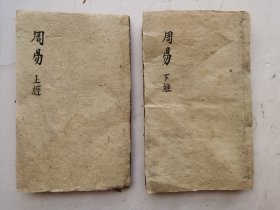 周易
上經
周易
下經